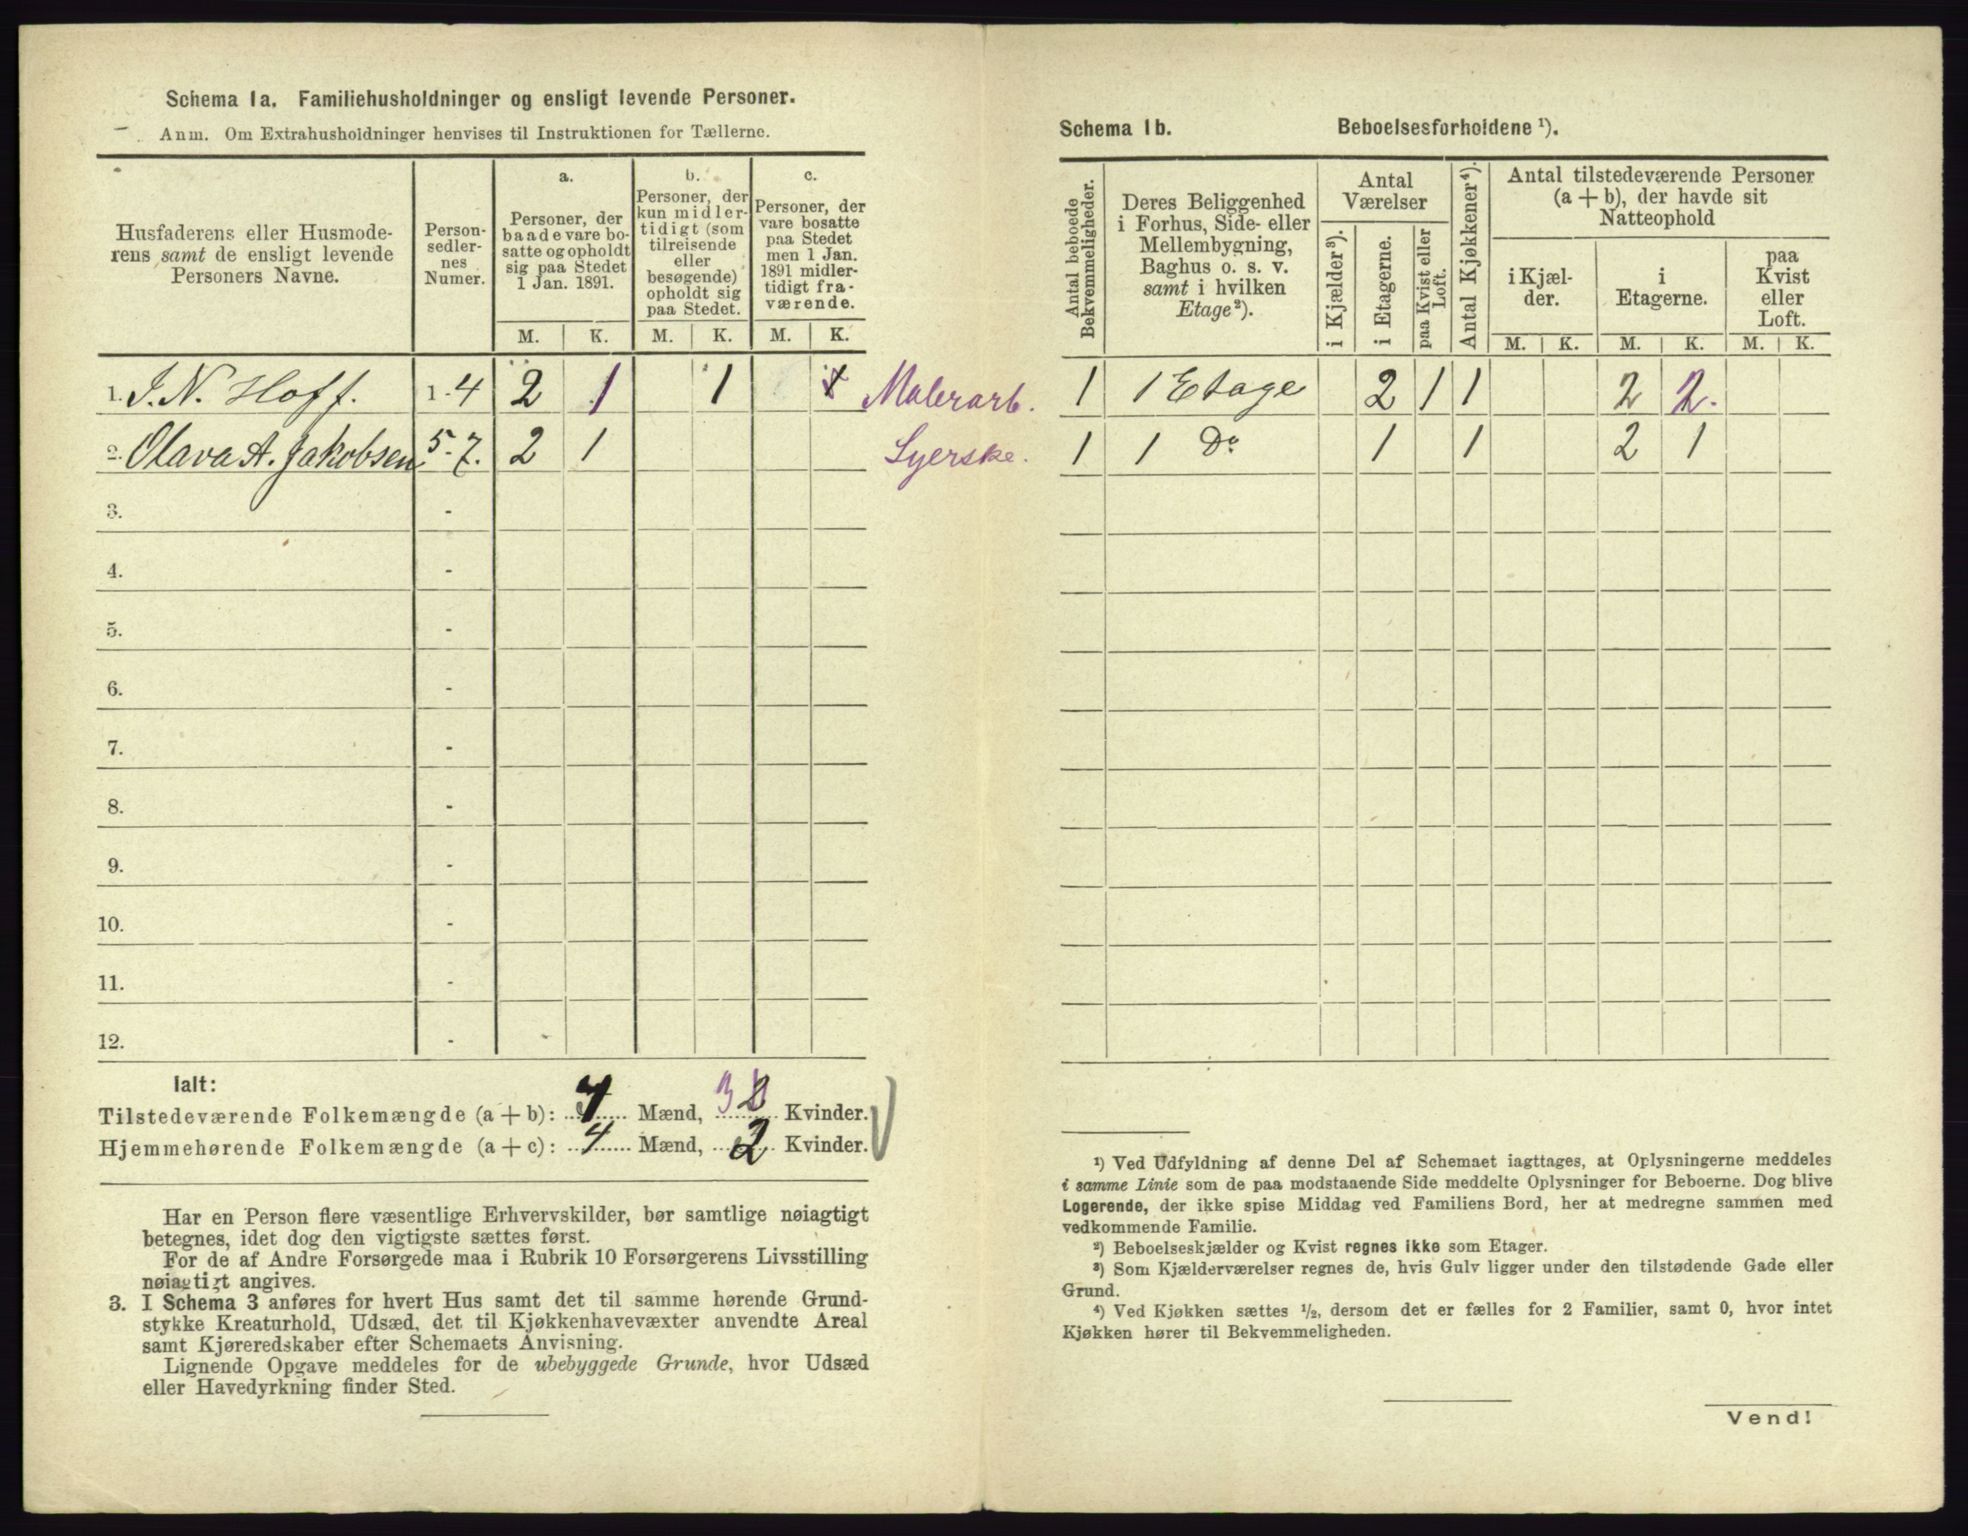 Schema 1a. Familiehusholdninger og ensligt levende Personer.
Anm. Om Extrahusholdninger henvises til Instruktionen for Tællerne.
Husfaderens eller Husmode-
rens samt de ensligt levende
Personers Navne.
Person-
sedler-
nes
Numer.
a.
Personer, der
baade vare bo-
satte og opholdt
sig paa Stedet
1 Jan. 1891.
b.
Personer, der
kun midler-
tidigt (som
tilreisende
eller
besøgende)
opholdt sig
paa Stedet.
c.
Personer, der
vare bosatte
paa Stedet
men 1 Jan.
1891 midler-
tidigt fra-
værende.
M. K. M. K. M. K.
1. J. N. Hoff. 1-4 2 1 1 Malerarb.
2. Olava A. Jakobsen 5-7. 2 1 Syerske.
3. -
4. -
5. -
6. -
7. -
8. -
9. -
10. -
11. -
12. -
Ialt:
Tilstedeværende Folkemængde (a + b): 4 Mænd, 3 Kvinder.
Hjemmehørende Folkemængde (a + c): 4 Mænd, 2 Kvinder.
Har en Person flere væsentlige Erhvervskilder, bør samtlige nøiagtigt
betegnes, idet dog den vigtigste sættes først.
For de af Andre Forsørgede maa i Rubrik 10 Forsørgerens Livsstilling
nøiagtigt angives.
3. I Schema 3 anføres for hvert Hus samt det til samme hørende Grund-
stykke Kreaturhold, Udsæd, det til Kjøkkenhavevæxter anvendte Areal
samt Kjøreredskaber efter Schemaets Anvisning.
Lignende Opgave meddeles for de ubebyggede Grunde, hvor Udsæd
eller Havedyrkning finder Sted.
Schema 1b. Beboelsesforholdene ¹).
Antal beboede
Bekvemmeligheder.
Deres Beliggenhed
i Forhus, Side- eller
Mellembygning,
Baghus o. s. v.
samt i hvilken
Etage²).
Antal
Værelser
i Kjælder³).
i Etagerne.
paa Kvist eller
Loft.
Antal Kjøkkener⁴).
Antal tilstedeværende Personer
(a + b), der havde sit
Natteophold
i Kjæl-
der.
i
Etagerne.
paa
Kvist
eller
Loft.
M. K. M. K. M. K.
1 1 Etage 2 1 1 2 2.
1 1 Do 1 1 2 1
¹) Ved Udfyldning af denne Del af Schemaet iagttages, at Oplysningerne meddeles
i samme Linie som de paa modstaaende Side meddelte Oplysninger for Beboerne. Dog blive
Logerende, der ikke spise Middag ved Familiens Bord, her at medregne sammen med
vedkommende Familie.
²) Beboelseskjælder og Kvist regnes ikke som Etager.
³) Som Kjælderværelser regnes de, hvis Gulv ligger under den tilstødende Gade eller
Grund.
⁴) Ved Kjøkken sættes ½, dersom det er fælles for 2 Familier, samt 0, hvor intet
Kjøkken hører til Bekvemmeligheden.
Vend!